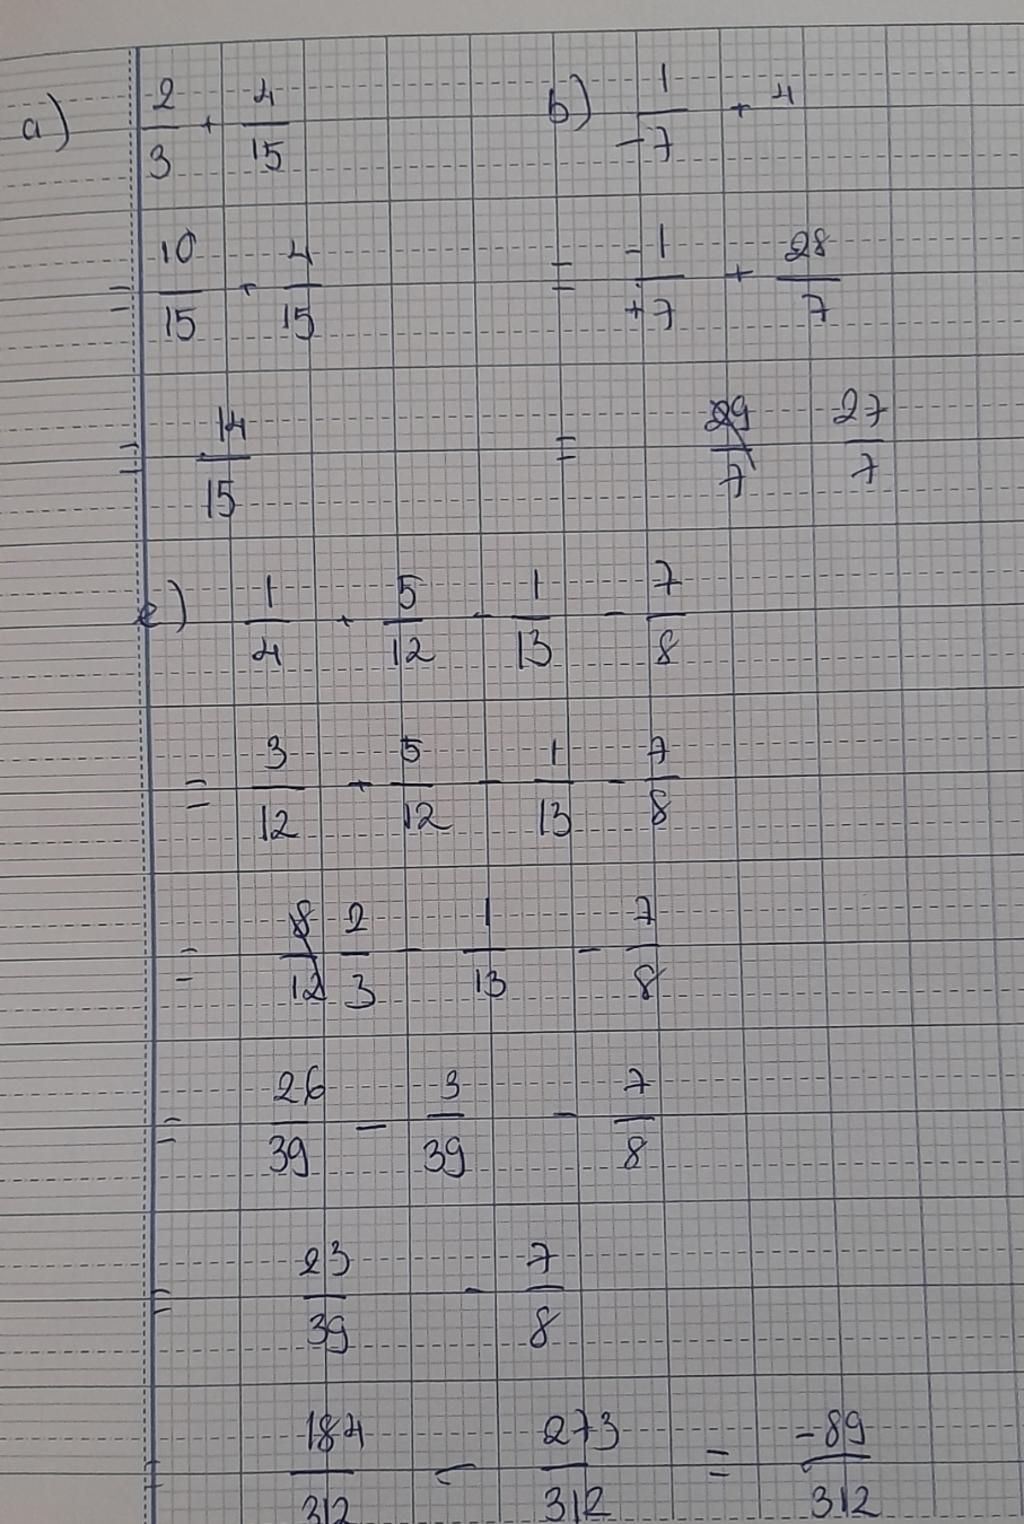 a) 2/3 + 4/15
= 10/15 + 4/15
= 14/15
b) 1/-7 + 4
= -1/+7 + 28/7
= 29/7 27/7
e) 1/4 + 5/12 - 1/13 - 7/8
= 3/12 + 5/12 - 1/13 - 7/8
= 8/12 2/3 - 1/13 - 7/8
= 26/39 - 3/39 - 7/8
= 23/39 - 7/8
= 184/312 - 273/312 = -89/312